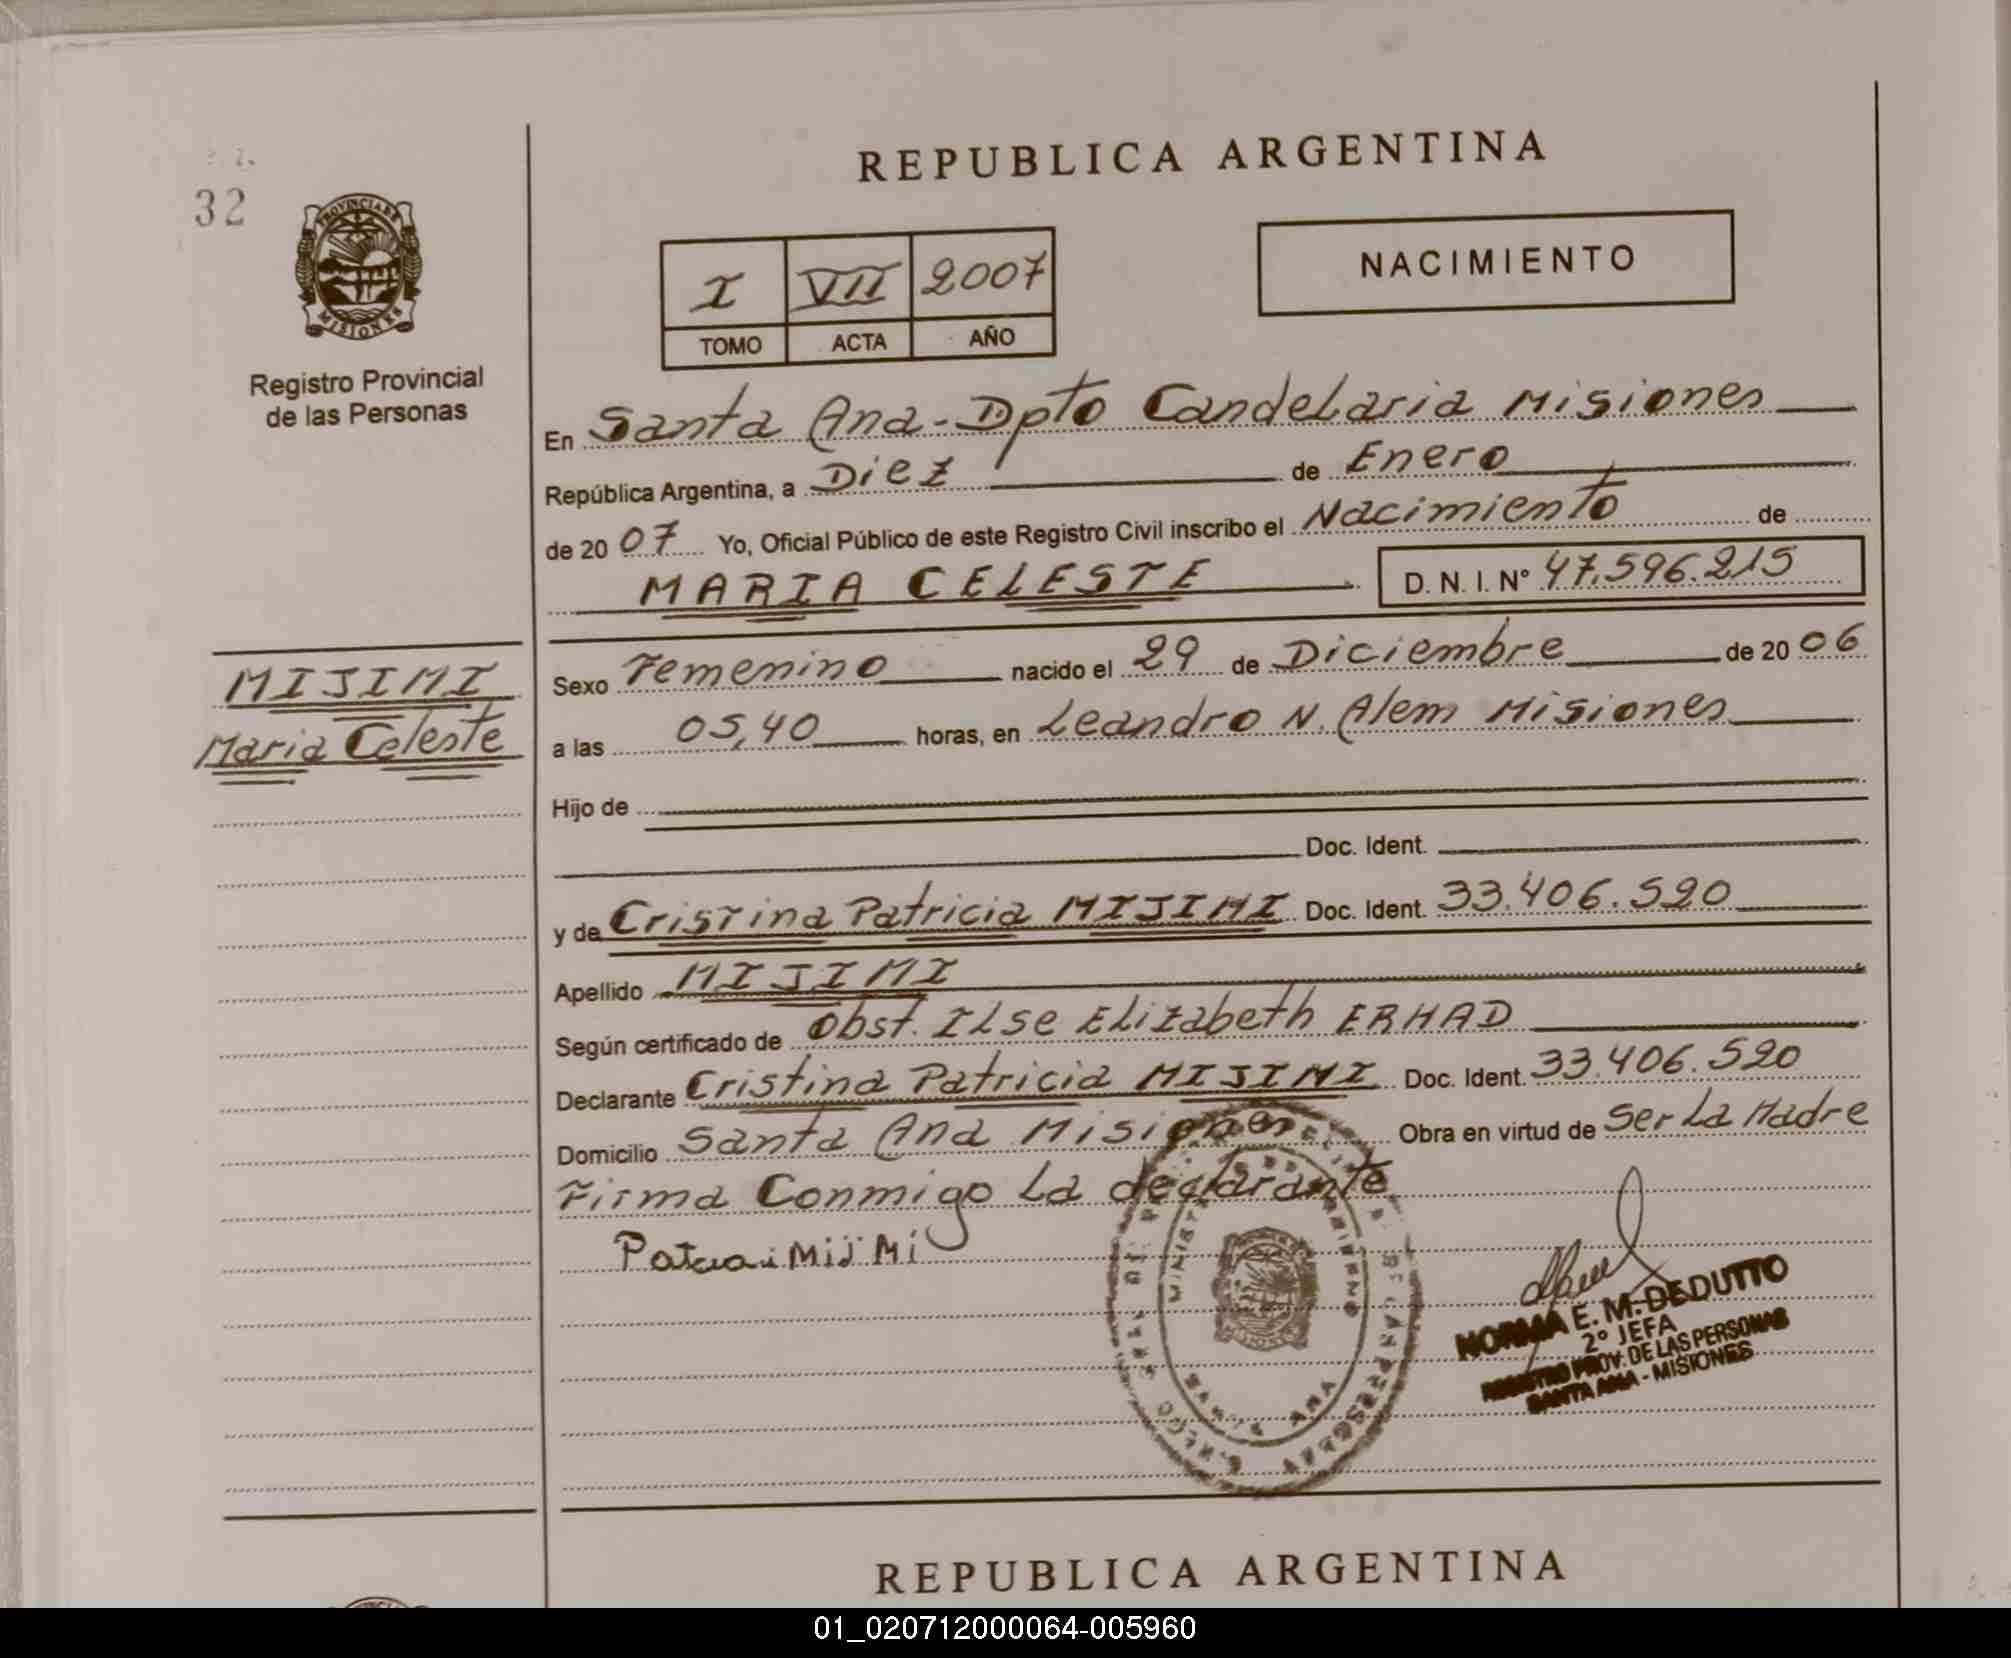 32
PROVINCIA DE
MISIONES
Registro Provincial
de las Personas
REPUBLICA ARGENTINA
I VII 2007
TOMO ACTA AÑO
NACIMIENTO
En Santa Ana - Dpto Candelaria Misiones
República Argentina, a Diez de Enero
de 2007 Yo, Oficial Público de este Registro Civil inscribo el Nacimiento de
MARIA CELESTE D. N. I. Nº 47.596.215
MIJIMI
Maria Celeste
Sexo Femenino nacido el 29 de Diciembre de 2006
a las 05,40 horas, en Leandro N. Alem Misiones
Hijo de
Doc. Ident.
y de Cristina Patricia MIJIMI Doc. Ident. 33.406.520
Apellido MIJIMI
Según certificado de Obst. Ilse Elizabeth ERHAD
Declarante Cristina Patricia MIJIMI Doc. Ident. 33.406.520
Domicilio Santa Ana Misiones Obra en virtud de Ser La Madre
Firma Conmigo La declarante
NORMA E. M. DEDUTTO
2º JEFA
REGISTRO PROV. DE LAS PERSONAS
SANTA ANA - MISIONES
REPUBLICA ARGENTINA
01_020712000064-005960